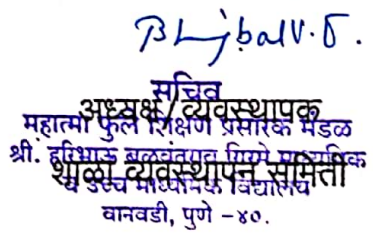 Bhujbal V. D.
सचिव
अध्यक्ष / व्यवस्थापक
महात्मा फुले शिक्षण प्रसारक मंडळ
श्री. हरिभाऊ बळवंतराव गिरमे माध्यमिक
शाळा व्यवस्थापन समिती
व उच्च माध्यमिक विद्यालय
वानवडी, पुणे -४०.